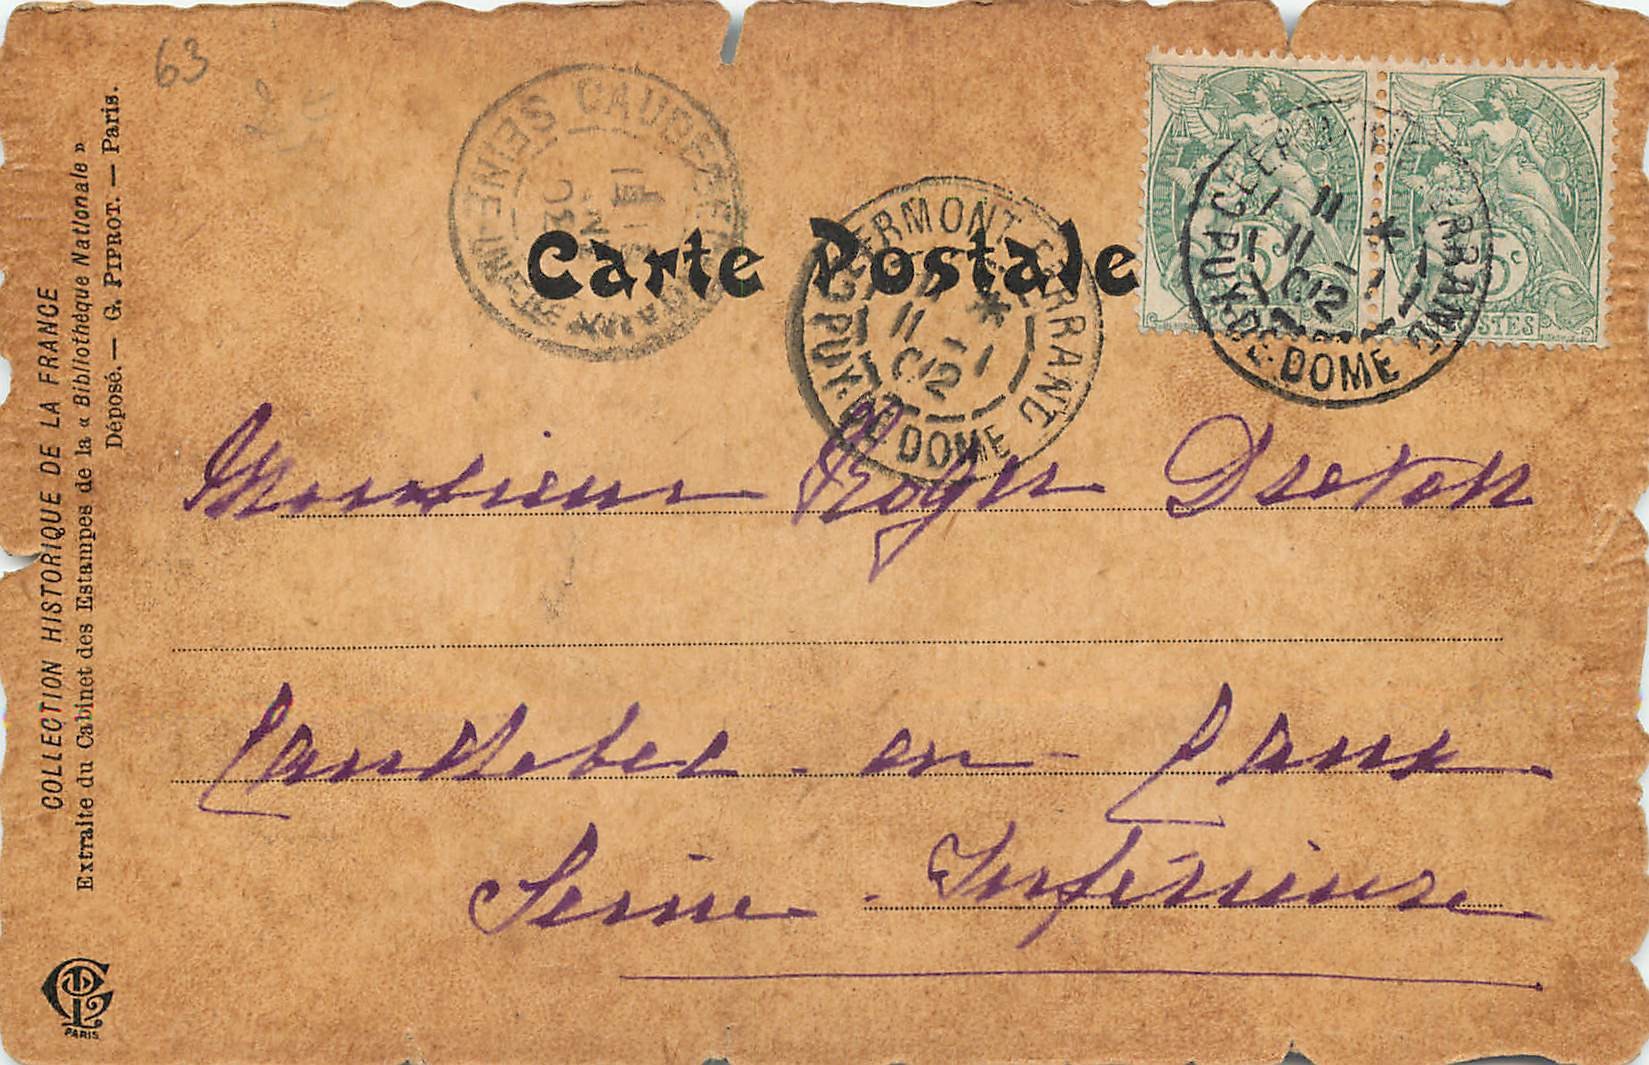 63
COLLECTION HISTORIQUE DE LA FRANCE
Extraite du Cabinet des Estampes de la « Bibliothèque Nationale »
Déposé. — G. PIPROT. — Paris.
PARIS
Carte Postale
CLERMONT FERRAND
11
02
PUY-DE-DOME
CLERMONT FERRAND
11
11
02
PUY-DE-DOME
5c
POSTES
SEINE-INF
Monsieur Roger
Caudebec - en - Caux
Seine - Inférieure